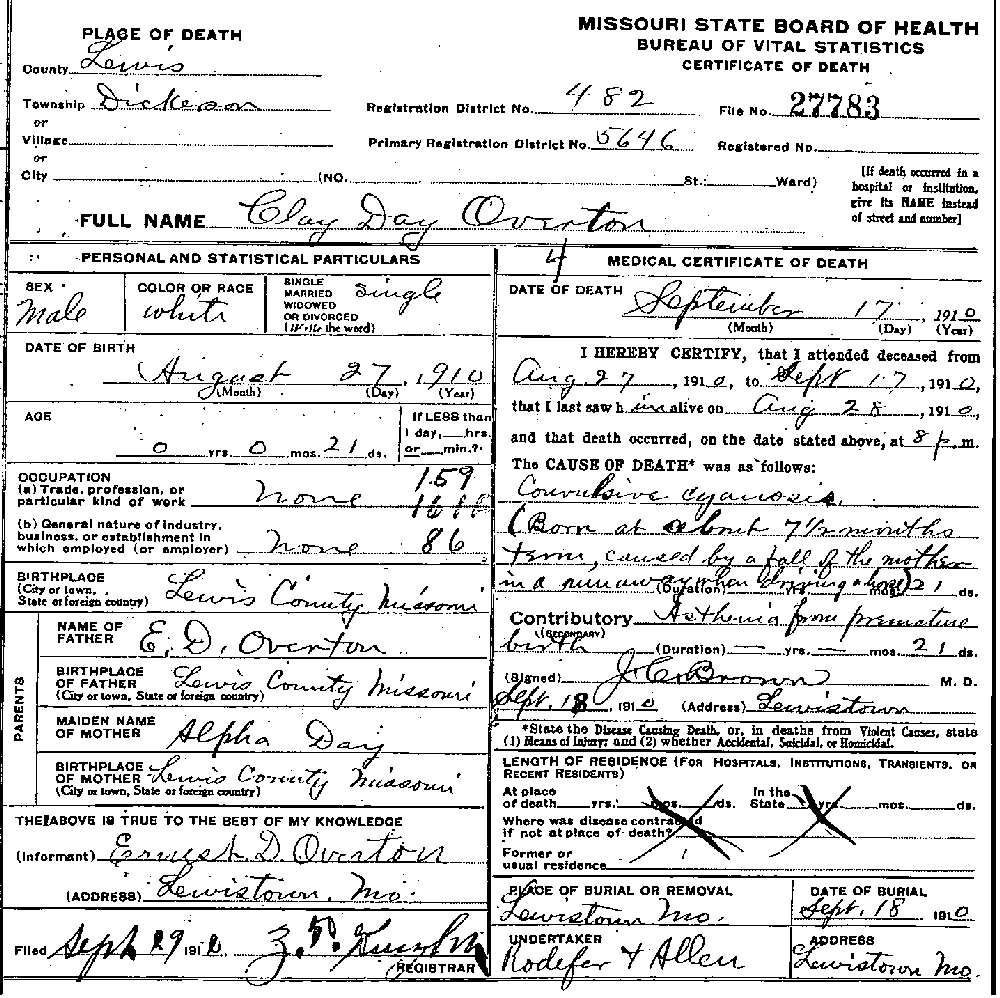 MISSOURI STATE BOARD OF HEALTH
BUREAU OF VITAL STATISTICS
CERTIFICATE OF DEATH
PLACE OF DEATH
County Lewis
Township Dickerson
or
Village
or
City (NO. St.; Ward)
Registration District No. 482
File No. 27783
Primary Registration District No. 5646
Registered No.
[If death occurred in a
hospital or institution,
give its NAME instead
of street and number]
FULL NAME Clay Day Overton
PERSONAL AND STATISTICAL PARTICULARS
SEX
Male
COLOR OR RACE
white
SINGLE
MARRIED
WIDOWED
OR DIVORCED
(Write the word)
single
DATE OF BIRTH
August 27, 1910
(Month) (Day) (Year)
AGE
0 yrs. 0 mos. 21 ds.
If LESS than
1 day, hrs.
or min.?
OCCUPATION
(a) Trade, profession, or
particular kind of work none
(b) General nature of industry,
business, or establishment in
which employed (or employer) none
159
86
BIRTHPLACE
(City or town,
State or foreign country) Lewis County Missouri
PARENTS
NAME OF
FATHER E. D. Overton
BIRTHPLACE
OF FATHER
(City or town, State or foreign country) Lewis County Missouri
MAIDEN NAME
OF MOTHER Alpha Day
BIRTHPLACE
OF MOTHER
(City or town, State or foreign country) Lewis County Missouri
THE ABOVE IS TRUE TO THE BEST OF MY KNOWLEDGE
(Informant) Ernest D Overton
(ADDRESS) Lewistown, Mo.
Filed Sept 29 1910
REGISTRAR
4
MEDICAL CERTIFICATE OF DEATH
DATE OF DEATH
September 17, 1910
(Month) (Day) (Year)
I HEREBY CERTIFY, that I attended deceased from
Aug. 27, 1910, to Sept 17, 1910,
that I last saw him alive on Aug 28, 1910,
and that death occurred, on the date stated above, at 8 p. m.
The CAUSE OF DEATH* was as follows:
Convulsive cyanosis.
(Born at about 7 1/2 months
term, caused by a fall of the mother
in a runaway when driving a horse)
(Duration) yrs. mos. 21 ds.
Contributory Asthenia from premature
(SECONDARY)
birth (Duration) — yrs. — mos. 21 ds.
(Signed) J. C. Brown M. D.
Sept. 18, 1910 (Address) Lewistown
*State the Disease Causing Death, or, in deaths from Violent Causes, state
(1) Means of Injury; and (2) whether Accidental, Suicidal, or Homicidal.
LENGTH OF RESIDENCE (FOR HOSPITALS, INSTITUTIONS, TRANSIENTS, OR
RECENT RESIDENTS)
At place
of death yrs. mos. ds.
In the
State yrs. mos. ds.
Where was disease contracted
if not at place of death?
Former or
usual residence
PLACE OF BURIAL OR REMOVAL
Lewistown Mo.
DATE OF BURIAL
Sept. 18 1910
UNDERTAKER
Rodefer & Allen
ADDRESS
Lewistown Mo.